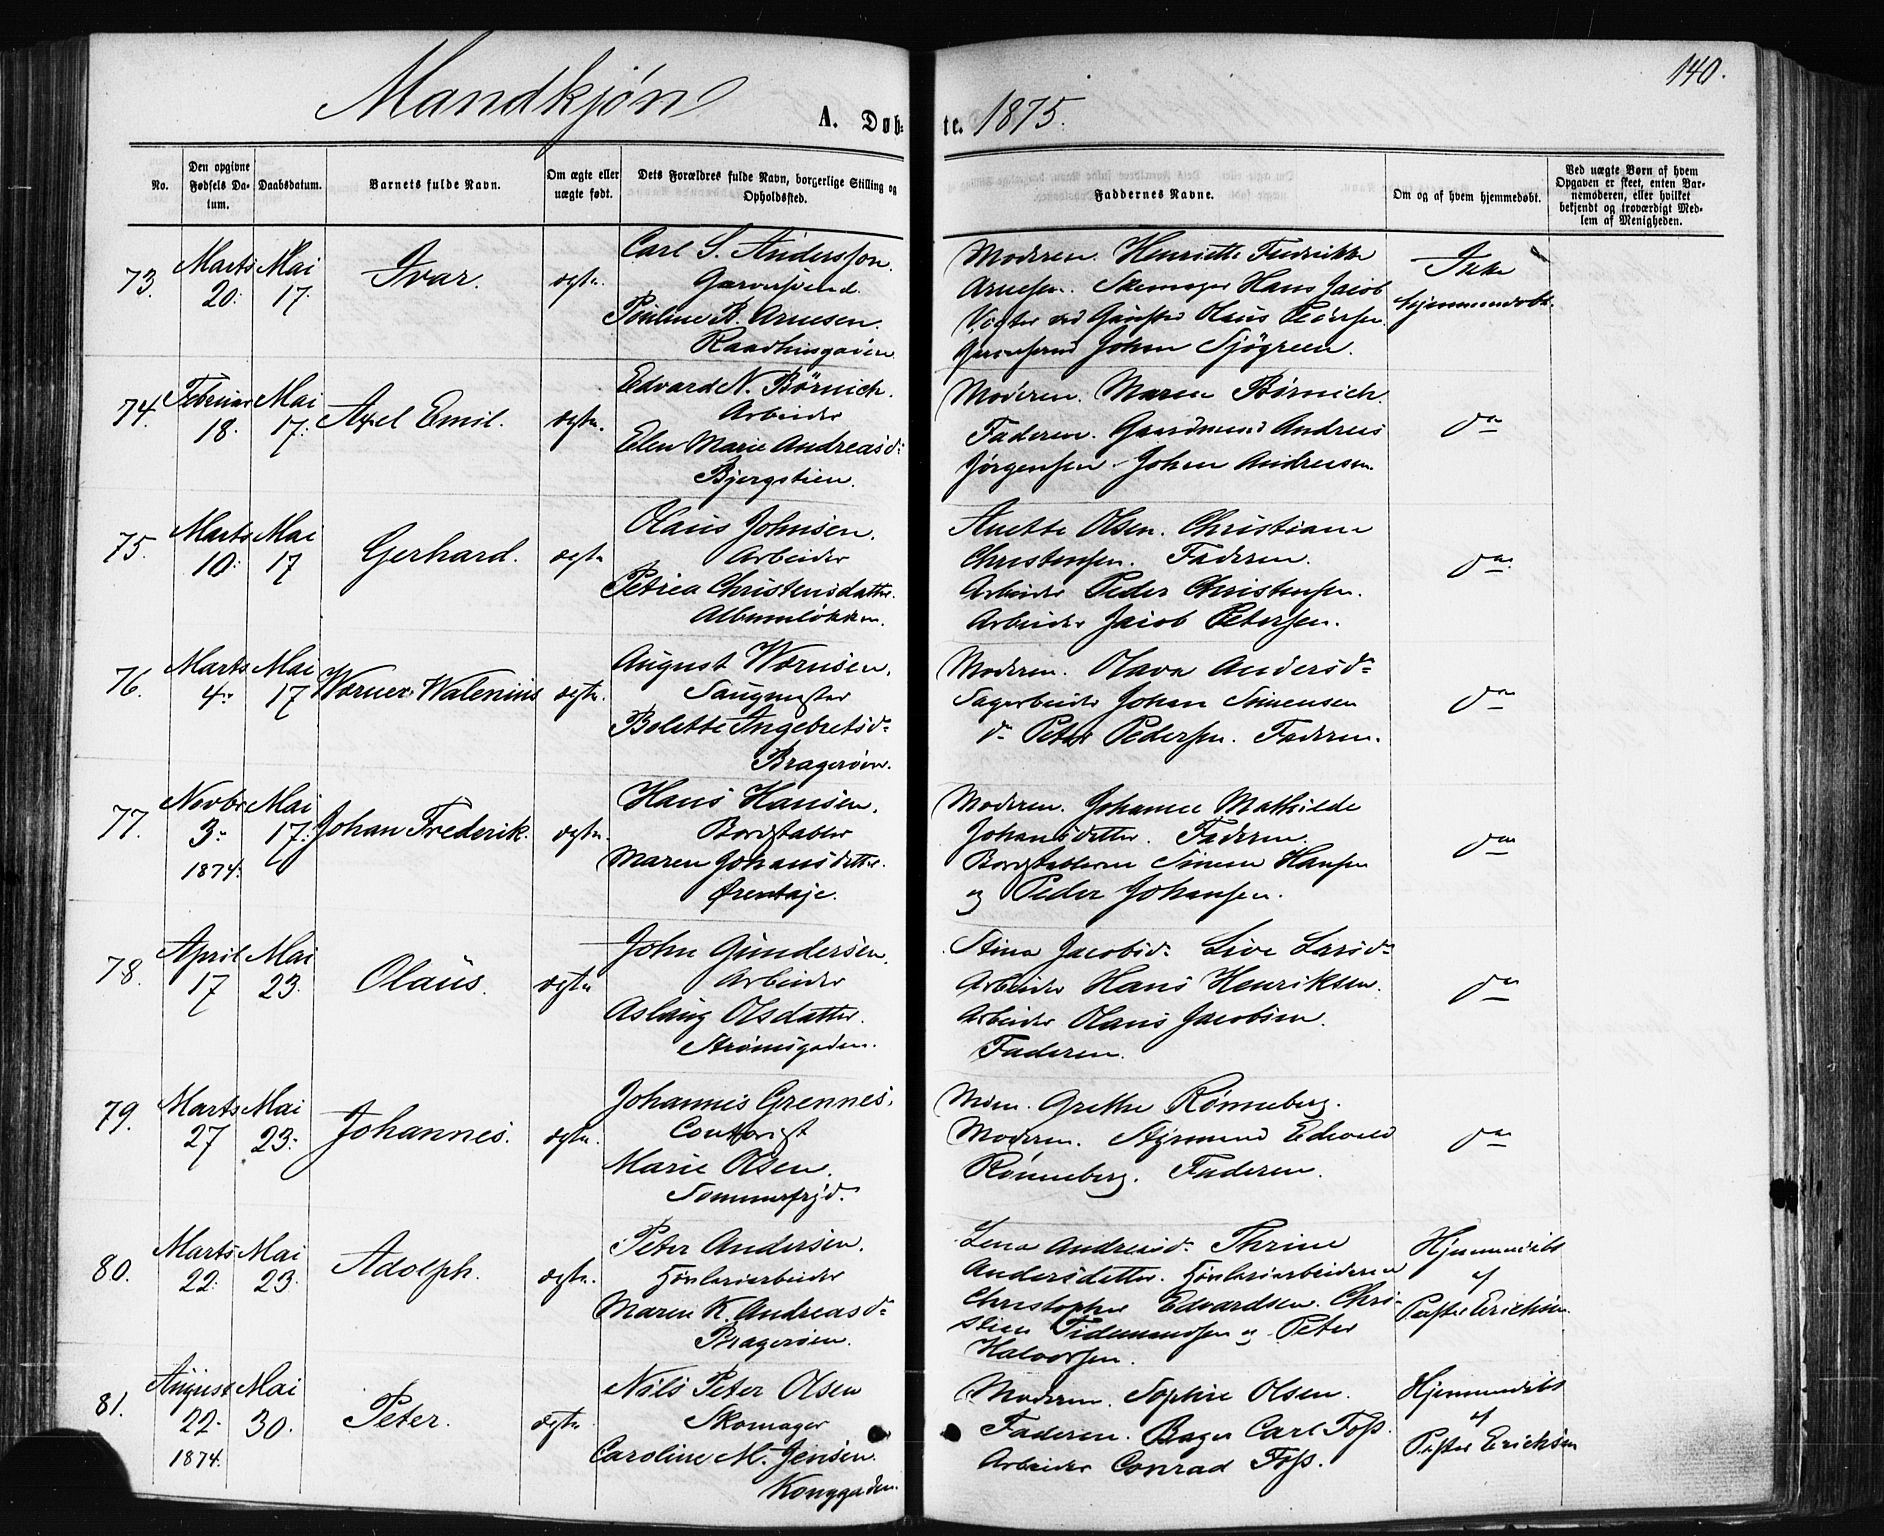 140.
Mandkjøn
A. Døb- te. 1875.
No.
Den opgivne Fødsels Da- tum.
Daabsdatum.
Barnets fulde Navn.
Om ægte eller uægte født.
Dets Forældres fulde Navn, borgerlige Stilling og Opholdssted.
Faddernes Navne.
Om og af hvem hjemmedøbt.
Ved uægte Børn af hvem Opgaven er skeet, enten Bar- nemoderen, eller hvilket bekjendt og troværdigt Med- lem af Menigheden.
73. Marts 20. Mai 17. Ivar. ægte.
Carl S. Anderssen.
Garversvend.
Pauline B. Arnesen.
Raadhusgaden.
Moderen. Henriette Fredrikke
Arnesen. Skomager Hans Jacob
Olaus Pedersen.
Garversvend Johan Sjögreen.
Ikke hjemmedøbt.
74. Februar 18. Mai 17. Axel Emil. ægte.
Edvard N. Börnich.
Arbeider
Elen Marie Andreasd.
Bjergstien.
Moderen. Maren Börnich.
Faderen. Gaardmand Andreas
Jörgensen. Johan Andresen.
do
75. Marts 10. Mai 17 Gerhard. ægte
Olaus Johnsen.
Arbeider
Petrea Christensdatter.
Albumløkken.
Anette Olsen. Christiane
Christensen. Faderen.
Arbeider Peder Christensen.
Arbeider Jacob Petersen.
do
76. Marts 4. Mai 17 Werner Walenius ægte.
August Wernsen.
Saugmester
Bolette Angebretsd.
Bragerøen.
Moderen. Olava Andersd.
Sagarbeider Johan Simensen
do Peter Pedersen. Faderen.
do
77. Novbr 3. 1874. Mai 17. Johan Frederik. ægte.
Hans Hansen.
Bordstabler
Maren Johansdatter.
Ørentaje.
Moderen. Johanne Mathilde
Johansdatter. Faderen.
Bordstablerne Simen Hansen
og Peder Johansen.
do
78. April 17 Mai 23. Olaus. ægte
John Gundersen.
Arbeider
Aslaug Olsdatter.
Strömsgaden.
Stina Jacobsd. Live Larsd.
Arbeider Hans Henriksen.
Arbeider Olaus Jacobsen.
Faderen.
do
79. Marts 27 Mai 23. Johannes. ægte.
Johannes Grennes.
Contorist
Marie Olsen.
Sommerfryd.
Mdm. Grethe Rönneberg.
Moderen. Styrmand Edvald
Rönneberg. Faderen.
do
80. Marts 22. Mai 23. Adolph. ægte.
Peter Andersen.
Maren K. Andreasd.
Bragerøen.
Lena Andreasd. Thrine
Andersdatter.
Christopher Edvardsen. Chri-
stian Tidemandsen og Peter
Halvorsen.
Hjemmedøbt af Pastor Erichsen.
81. August 22. 1874. Mai 30. Peter. ægte.
Nils Peter Olsen
Skomager
Caroline M. Jensen.
Konggaden.
Moderen. Sophie Olsen.
Faderen. Bager Carl Foss.
Arbeider Conrad Foss.
Hjemmedøbt af Pastor Erichsen